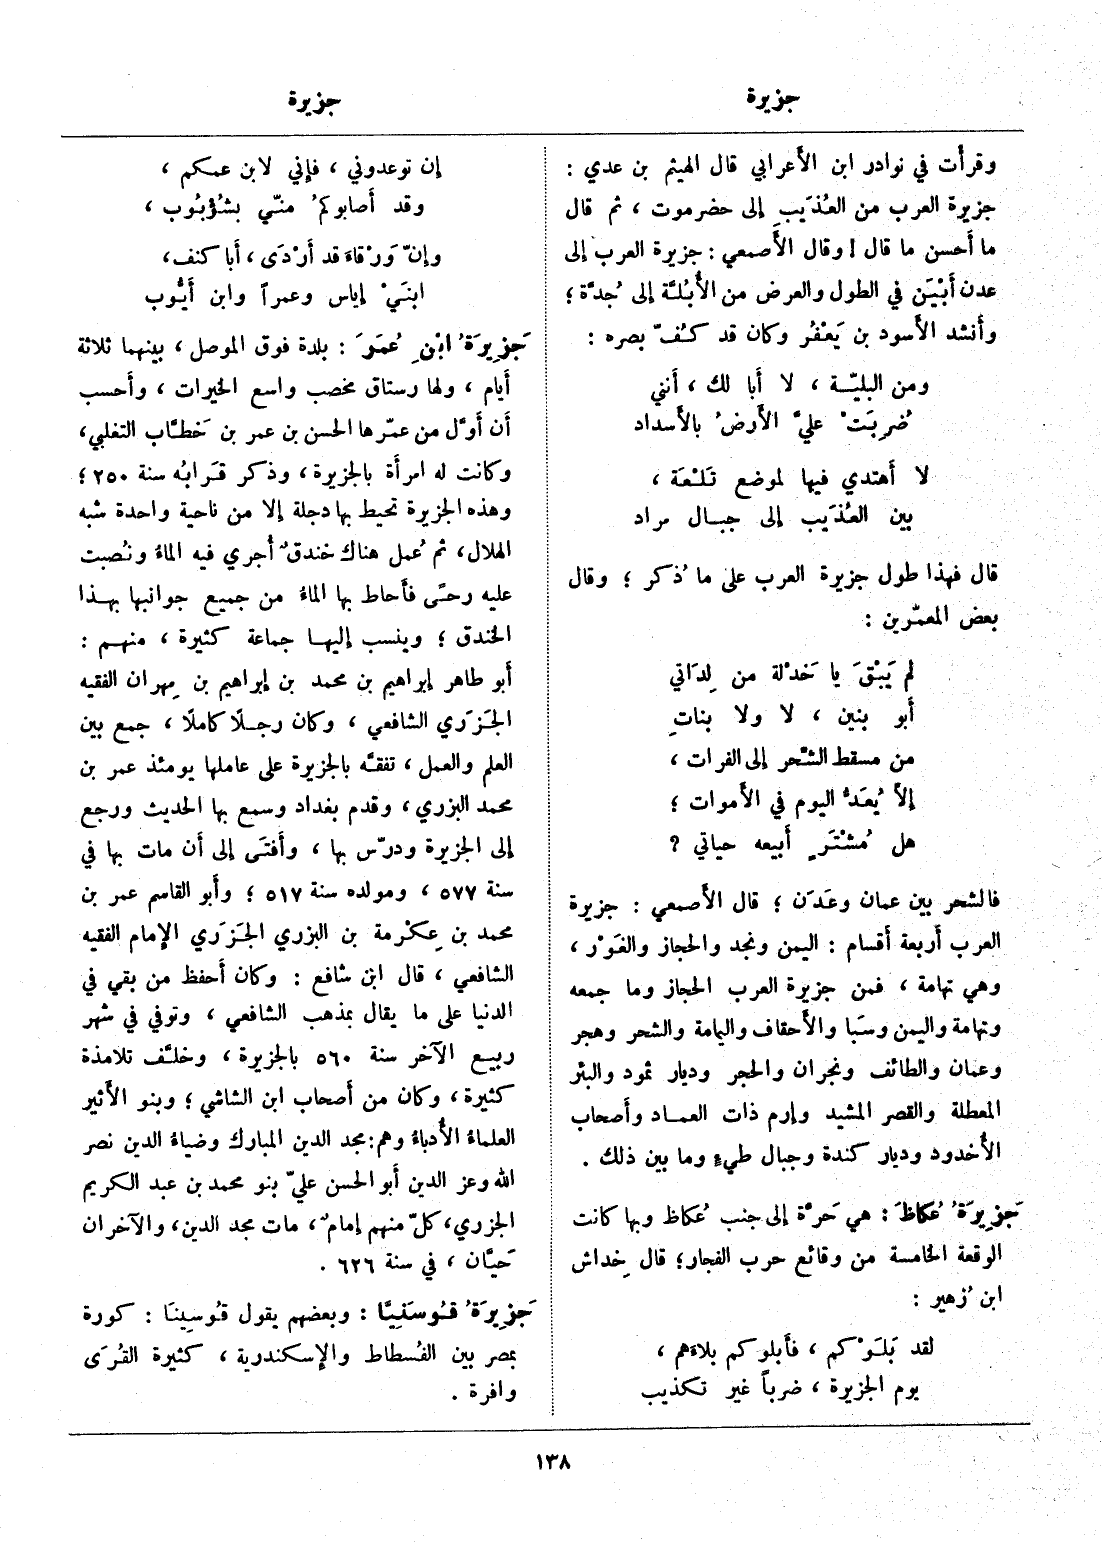 جزيرة
جزيرة
وقرأت في نوادر ابن الأعرابي قال الهيثم بن عدي :
جزيرة العرب من العُذَيب إلى حضرموت ، ثم قال
ما أحسن ما قال ! وقال الأصمعي : جزيرة العرب إلى
عدن أَبْيَن في الطول والعرض من الأُبُلّة إلى جُدَّة ؛
وأنشد الأسود بن يَعْفُر وكان قد كُفّ بصره :
ومن البليّة ، لا أبا لك ، أنني
ضُرِبَتْ عليّ الأرضُ بالأسداد
لا أهتدي فيها لموضع تَلْعَة ،
بين العُذَيب إلى جبال مراد
قال فهذا طول جزيرة العرب على ما ذُكر ؛ وقال
بعض المعمّرين :
لم يَبْقَ يا خَدْلة من لِدَاتي
أبو بنين ، لا ولا بناتِ
من مسقط الشّحر إلى الفرات ،
إلاّ يُعَدُّ اليوم في الأموات ؛
هل مُشْتَرٍ أبيعه حياتي ?
فالشحر بين عمان وعَدَن ؛ قال الأصمعي : جزيرة
العرب أربعة أقسام : اليمن ونجد والحجاز والغَوْر ،
وهي تهامة ، فمن جزيرة العرب الحجاز وما جمعه
وتهامة واليمن وسَبا والأحقاف واليمامة والشحر وهجر
وعمان والطائف ونجران والحجر وديار ثمود والبئر
المعطلة والقصر المشيد وإرم ذات العماد وأصحاب
الأُخدود وديار كندة وجبال طيءٍ وما بين ذلك .
جَزِيرَةُ عُكاظَ : هي حَرّة إلى جنب عُكاظ وبها كانت
الوقعة الخامسة من وقائع حرب الفجار؛ قال خِداش
ابن زُهير :
لقد بَلَوْكم ، فأَبلوكم بلاءَهم ،
يوم الجزيرة ، ضرباً غير تكذيب
إن توعدوني ، فإني لابن عمكم ،
وقد أصابوكمُ منّي بشُؤبُوب ،
وإنّ وَرْقاءَ قد أرْدَى ، أبا كنف،
ابنَيْ إياس وعمراً وابن أيُّوب
جَزِيرَةُ ابْنِ عُمَرَ : بلدة فوق الموصل ، بينهما ثلاثة
أيام ، ولها رستاق مخصب واسع الخيرات ، وأحسب
أن أوّل من عمّرها الحسن بن عمر بن خَطّاب التغلبي،
وكانت له امرأة بالجزيرة ، وذكر قَرابُه سنة ٢٥٠ ؛
وهذه الجزيرة تحيط بها دجلة إلا من ناحية واحدة شبه
الهلال، ثم عُمل هناك خندقٌ أُجري فيه الماءُ ونُصبت
عليه رحَى فأحاط بها الماءُ من جميع جوانبها بهذا
الخندق ؛ وينسب إليها جماعة كثيرة ، منهم :
أبو طاهر إبراهيم بن محمد بن إبراهيم بن مِهران الفقيه
الجَزَري الشافعي ، وكان رجلًا كاملًا ، جمع بين
العلم والعمل ، تفقّه بالجزيرة على عاملها يومئذ عمر بن
محمد البزري ، وقدم بغداد وسمع بها الحديث ورجع
إلى الجزيرة ودرّس بها ، وأفتَى إلى أن مات بها في
سنة ٥٧٧ ، ومولده سنة ٥١٧ ؛ وأبو القاسم عمر بن
محمد بن عِكْرمة بن البزري الجَزَري الإمام الفقيه
الشافعي ، قال ابن شافع : وكان أحفظ من بقي في
الدنيا على ما يقال بمذهب الشافعي ، وتوفي في شهر
ربيع الآخر سنة ٥٦٠ بالجزيرة ، وخلّف تلامذة
كثيرة ، وكان من أصحاب ابن الشاشي ؛ وبنو الأثير
العلماءُ الأُدباءُ وهم: مجد الدين المبارك وضياءُ الدين نصر
الله وعز الدين أبو الحسن عليّ بنو محمد بن عبد الكريم
الجزري، كلّ منهم إمامٌ ، مات مجد الدين، والآخران
حَيّان ، في سنة ٦٢٦ .
جَزِيرَةُ قُوسَنِيّا : وبعضهم يقول قُوسِينَا : كورة
بمصر بين الفُسطاط والإسكندرية ، كثيرة القُرَى
وافرة .
١٣٨